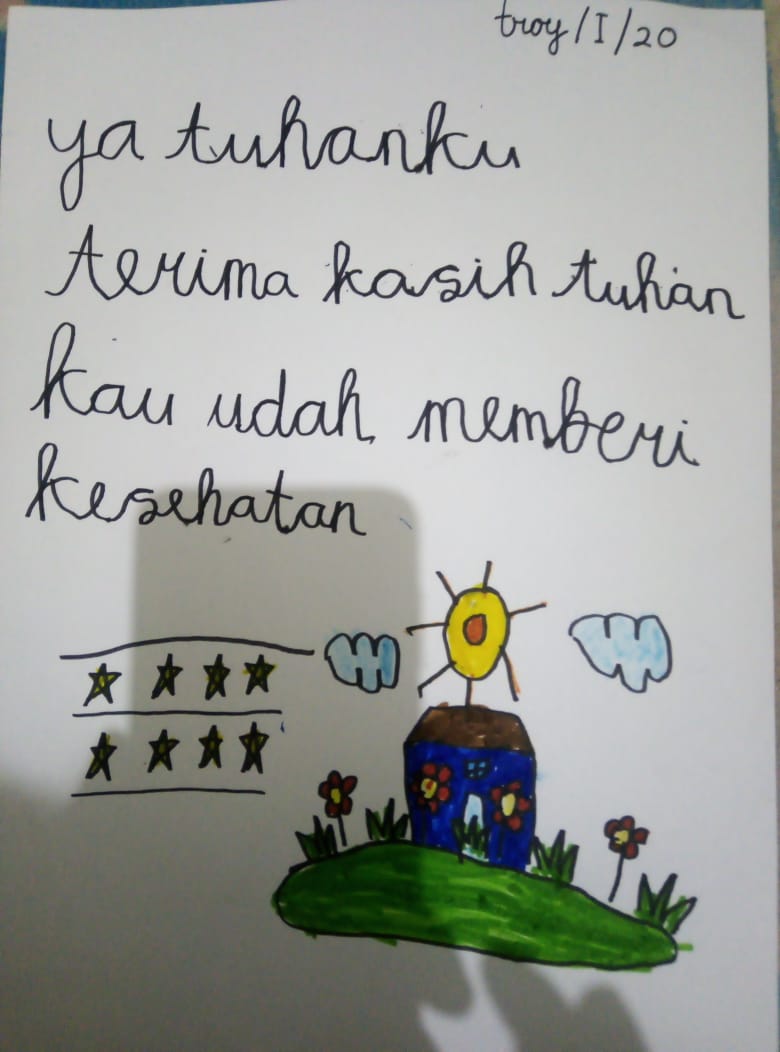 troy/I/20
ya tuhanku
terima kasih tuhan
kau udah memberi
kesehatan